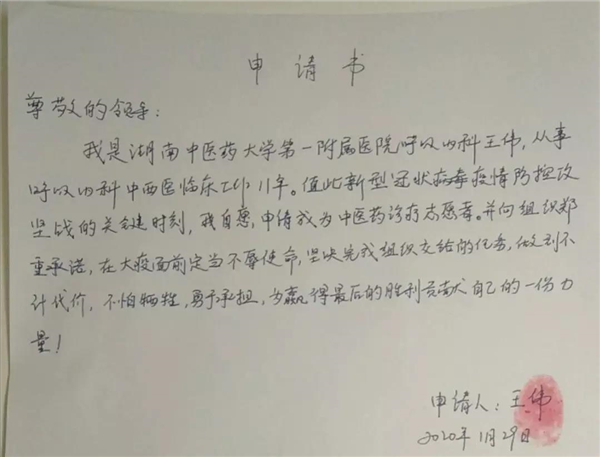 申请书
尊敬的领导：
我是湖南中医药大学第一附属医院呼吸内科王伟，从事
呼吸内科中西医临床工作11年。值此新型冠状病毒疫情防控攻
坚战的关键时刻，我自愿申请成为中医药诊疗志愿者。并向组织郑
重承诺，在大疫面前定当不辱使命，坚决完成组织交给的任务，做到不
计代价，不怕牺牲，勇于承担，为赢得最后的胜利贡献自己的一份力
量！
申请人：王伟
2020年1月29日